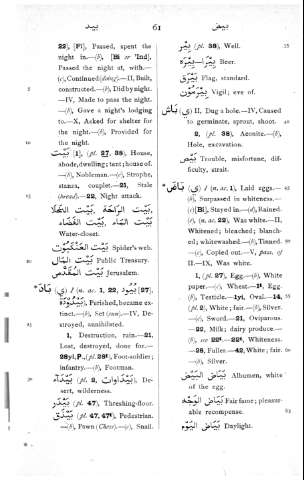 بيد
61
بيض
22], [Fi], Passed, spent the
night in.—(b), [Bi or 'Ind]
Passed the night at, with.—
(c), Continued (doing).—II, Built,
constructed.—(b), Did by night.
—IV, Made to pass the night.
—(b), Gave a night's lodging
to.—X, Asked for shelter for
the night.—(b), Provided for
the night.
بَيْت [1], (pl. 27, 38), House,
abode, dwelling; tent; house of.
—(b), Nobleman.—(c), Strophe,
stanza, couplet.—21, Stale
(bread).—22, Night attack.
بَيْت الرَّاحَة, بَيْت الْخَلَا
بَيْت الْمَاء, بَيْت الْقَضَاء
Water-closet.
بَيْت الْعَنْكَبُوت Spider's web.
بَيْت الْمَال Public Treasury.
بَيْت الْمُقَدَّس Jerusalem.
بَادَ (ي) i (n. ac. 1, 22, [27]
بَيْدُودَة), Perished, became ex-
tinct.—(b), Set (sun).—IV, De-
stroyed, annihilated.
1, Destruction, ruin.—21,
Lost, destroyed, done for.—
infantry.—(b), Footman.
بَيْدَاء (pl. 2, بَيْدَاوَات), De-
sert, wilderness.
بَيْدَر (pl. 47), Threshing-floor.
بَيْدَق (pl. 47, 47), Pedestrian.
—(b), Pawn (Chess).—(c), Snail.
بِئْر (pl. 38), Well.
بِيرَا—بِيرَه Beer.
بَيْرَق Flag, standard.
بَيْرَمُون Vigil; eve of.
بَاشَ (ي) II, Dug a hole.—IV, Caused
to germinate, sprout, shoot.
2, (pl. 38), Aconite.—(b),
Hole, excavation.
بَيْص Trouble, misfortune, dif-
ficulty, strait.
بَاضَ (ي) i (n. ac. 1), Laid eggs.—
(b), Surpassed in whiteness.—
(c) [Bi], Stayed in.—(d), Rained.
(e), (n. ac. 22), Was white.—II,
Whitened; bleached; blanch-
ed; whitewashed.—(b), Tinned.
—(c), Copied out.—V, pass. of
II.—IX, Was white.
1, (pl. 27), Egg.—(b), White
paper.—(c), Wheat.—1, Egg.—
(b), Testicle.—1yi, Oval.—14,
(pl. 2), White; fair.—(b), Silver.
—(c), Sword.—21, Oviparous.
—22, Milk; dairy produce.—
(b), see 22.—22, Whiteness.
—28, Fuller.—42, White; fair.
—(b), Silver.
بَيَاض الْبَيْض Albumen, white
of the egg.
بَيَاض الْوَجْه Fair fame; pleasur-
able recompense.
بَيَاض الْيَوْم Daylight.